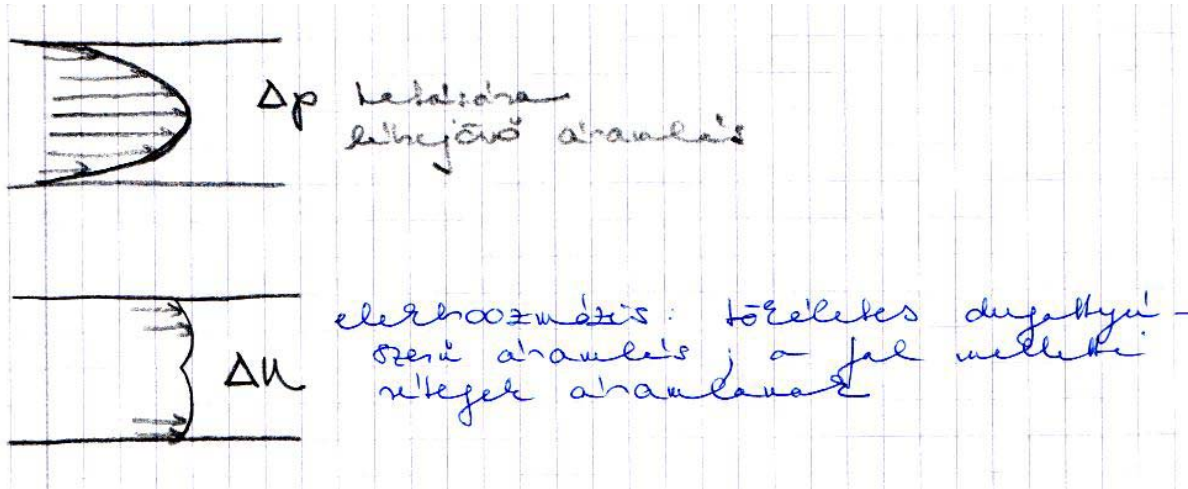 Δp hatására
létrejövő áramlás
ΔU
elektroozmózis: tökéletes dugattyú-
szerű áramlás; a fal melletti
rétegek áramlanak